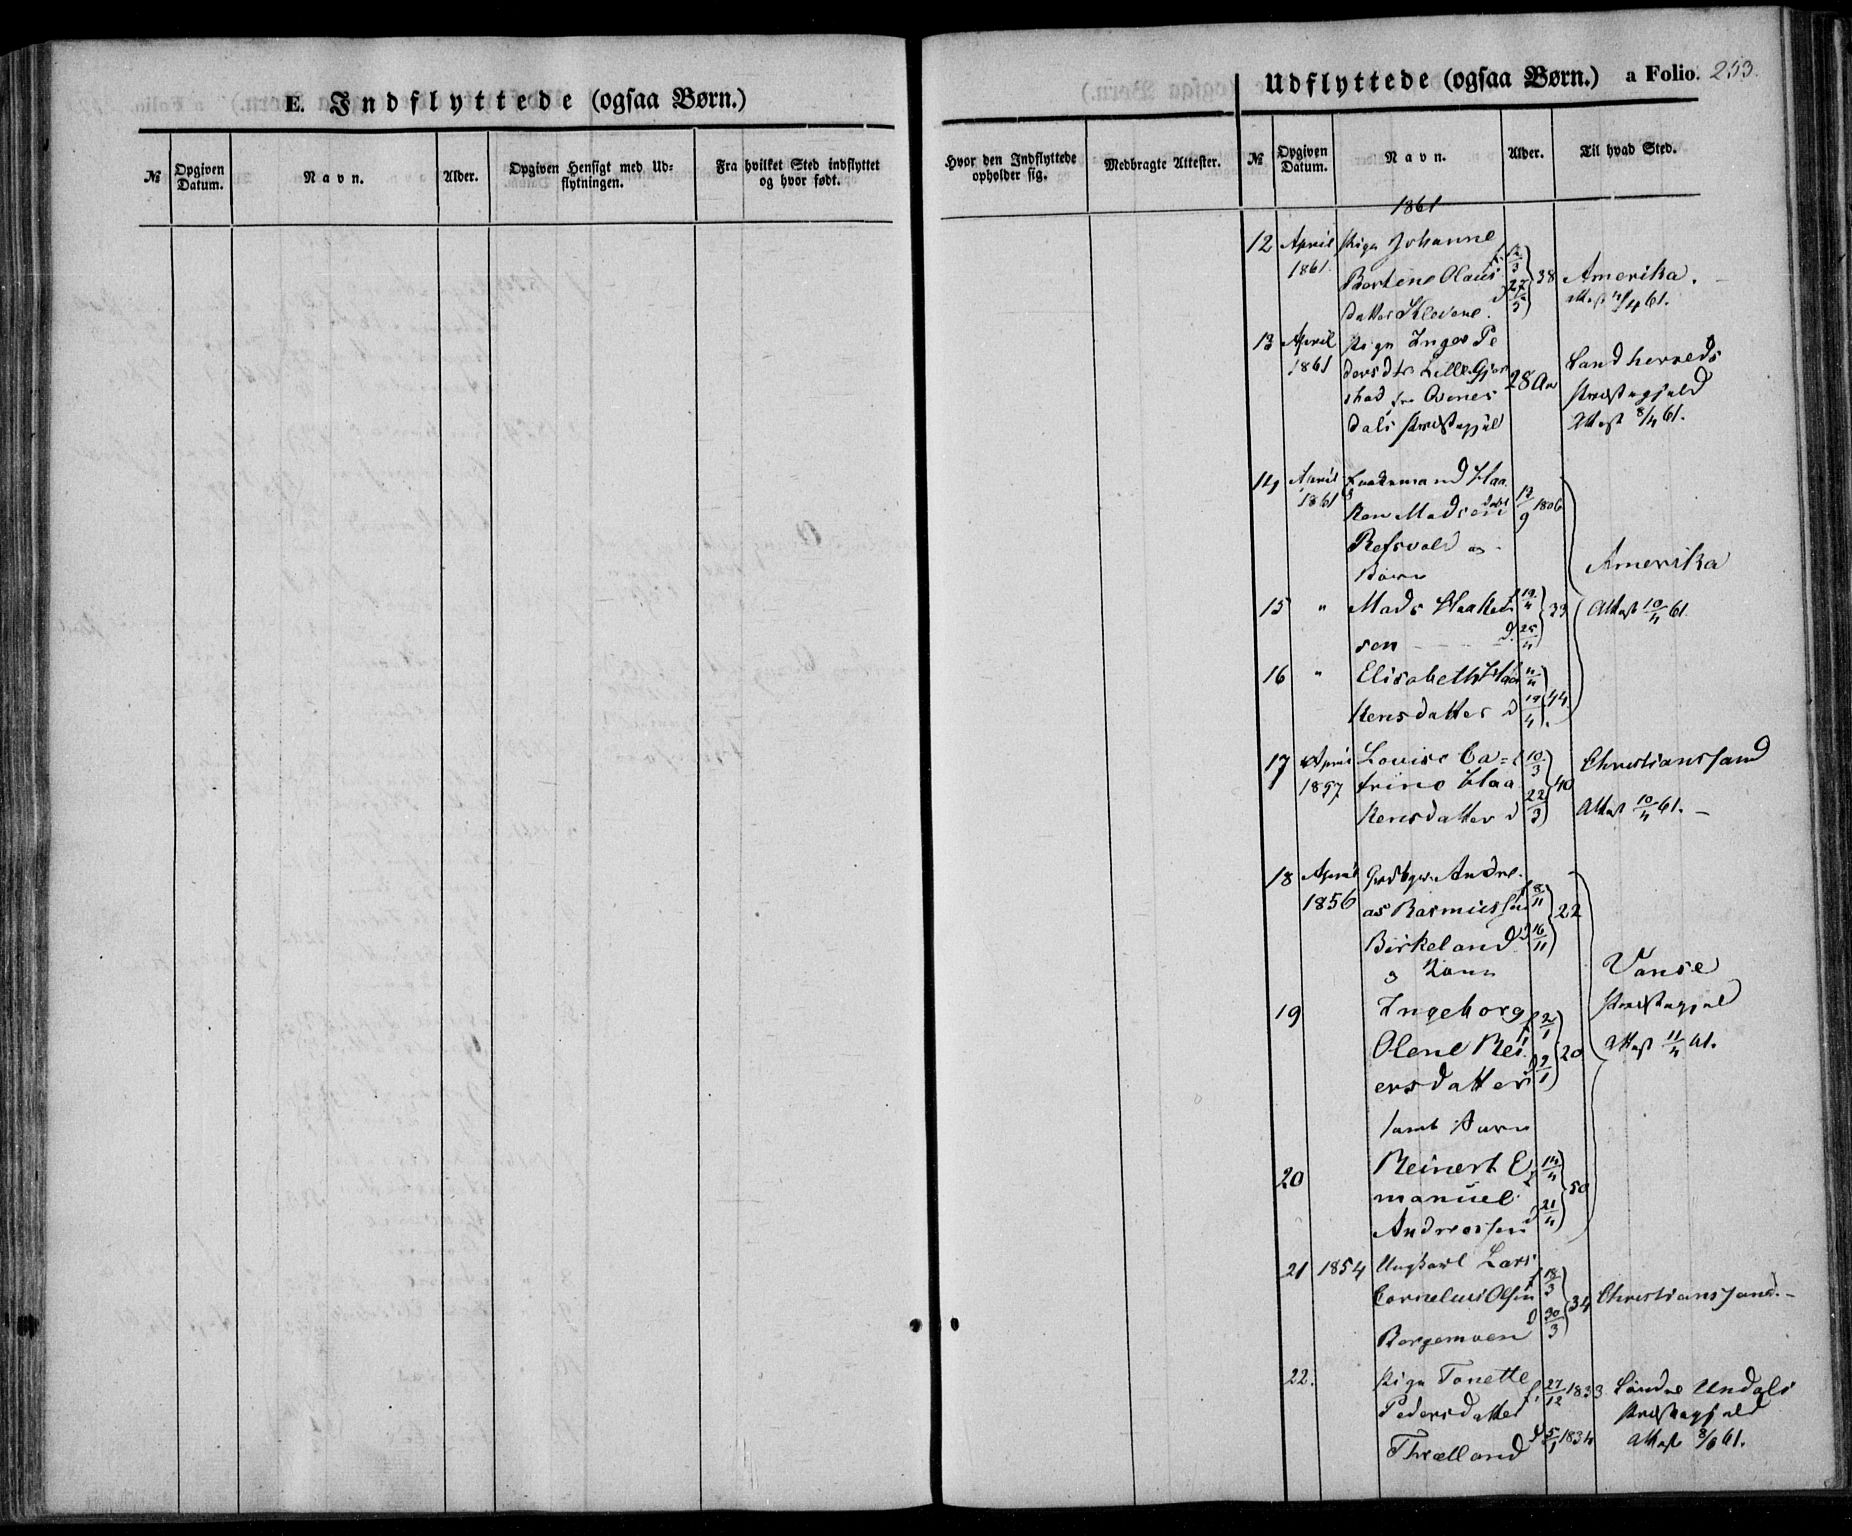 E. Indflyttede (ogsaa Børn.)
№ Opgiven Datum. Navn. Alder. Opgiven Hensigt med Ud=
flytningen. Fra hvilket Sted indflyttet
og hvor født.
Hvor den Indflyttede
opholder sig. Medbragte Attester.
Udflyttede (ogsaa Børn.) a Folio. 253.
№ Opgiven Datum. Navn. Alder. Til hvad Sted.
1861
12 April Pige Johanne
1861. Bertine Olaus f 12/3 38 Amerika.
datter Klevene. d 27/3 Attest /4 61.
13 April Pige Inger Pe
1861 dersdtr Lille Gjer 28 Aar Landherreds
stad fra Præstegjeld
dals Præstegjeld Attest 8/4 61.
14 April Haa
1861 ken Madsen 13/9 1806
Refsvold og
Børn Amerika
15 " Mads Haaken 19/4 33 Attest 10/4 61.
sen d. 25/4
16 " Elisabeth Haa 4/4 44
kensdatter d 19/4
17 April Louise Ca= f 10/3 40 Christianssand
1857 trine Haa
kensdatter d 22/3 Attest 10/4 61.
18 April Andre
1856 as Rasmussen f 8/11 22
Birkeland d 16/11
og Kone Vanse
19 Ingeborg f 2/1 20 Præstegjeld
Olene Rei Attest 11/4 61.
ersdatter d 9/1
samt Barn
20 Reinert E f 14/4 50
manuel
Andreassen d 21/4
21 1854 Ungkarl Lars
Cornelius Olsen f 18/3 34 Christianssand.
Borgemoen d 30/3
22. Pige Tonette f. 27/12 1833 Søndre Undals
Pedersdatter Præstegjeld
Thrælland d 5/1 1834 Attest 8/6 61.